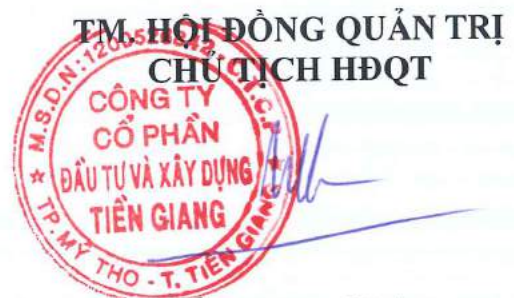 TM. HỘI ĐỒNG QUẢN TRỊ
CHỦ TỊCH HĐQT
M.S.D.N:
C.T.C.P
CÔNG TY
CỔ PHẦN
ĐẦU TƯ VÀ XÂY DỰNG
TIỀN GIANG
TP. MỸ THO - T. TIỀN GIANG